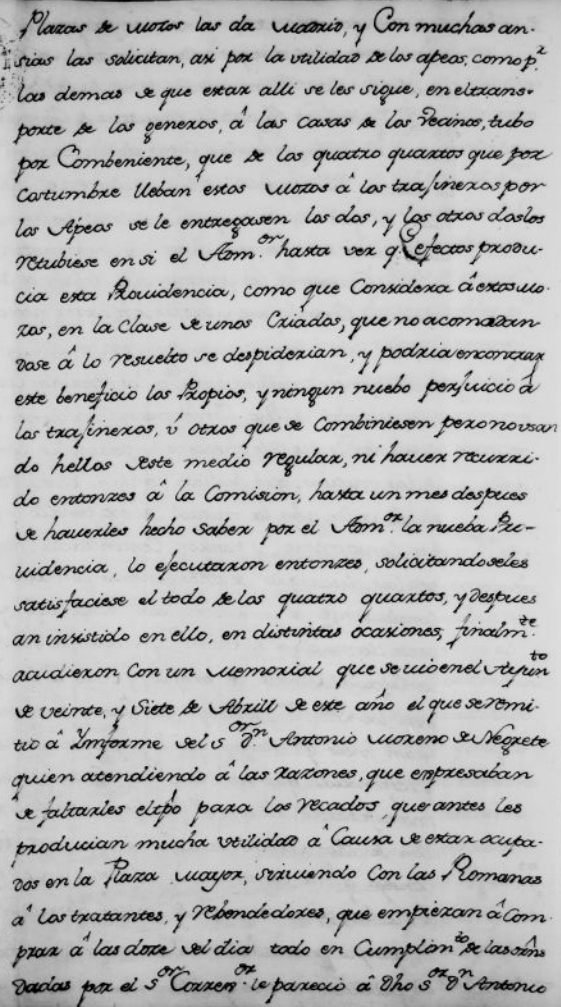 Plazas de mozos las da Madrid, y Con muchas an-
sias las solicitan, asi por la utilidad de los apeos, como pr.
las demas de que estar alli se les sigue, en el trans-
porte de los generos, â las casas de los vecinos, tubo
por Combeniente, que de los quatro quartos que por
Costumbre lleban estos mozos â los trajineros por
los Apeos se le entregasen los dos, y los otros dos los
retubiese en si el Admor. hasta ver q efectos produ-
cia esta Providencia, como que Considera â estos mo-
zos, en la Clase de unos Criados, que no acomodan
dose â lo resuelto se despiderian, y podria encontrar
este beneficio los Propios, y ningun nuebo perjuicio â
los trajineros, ú otros que se Combiniesen pero no usan
do hellos deste medio regular, ni haver recurri-
do entonzes â la Comision, hasta un mes despues
de haverles hecho saber por el Admor. la nueba Pro-
uidencia, lo ejecutaron entonzes, solicitandoseles
satisfaciese el todo de los quatro quartos, y despues
an insistido en ello, en distintas ocasiones, finalmte.
acudieron Con un memorial que se vio en el Ayunto
de veinte, y Siete de Abrill de este año el que se remi-
tio â Ymforme del Sor. dn. Antonio Moreno de Negrete
quien atendiendo â las razones, que espresaban
de faltarles el tpô para los recados, que antes les
producian mucha utilidad â Causa de estar ocupa-
dos en la Plaza mayor, sirviendo Con las Romanas
â los tratantes, y rebendedores, que empiezan â Com-
prar â las doze del dia todo en Cumplimto. de las ôrns
dadas por el Sor Corregor. le pareció â dho Sor dn Antonio